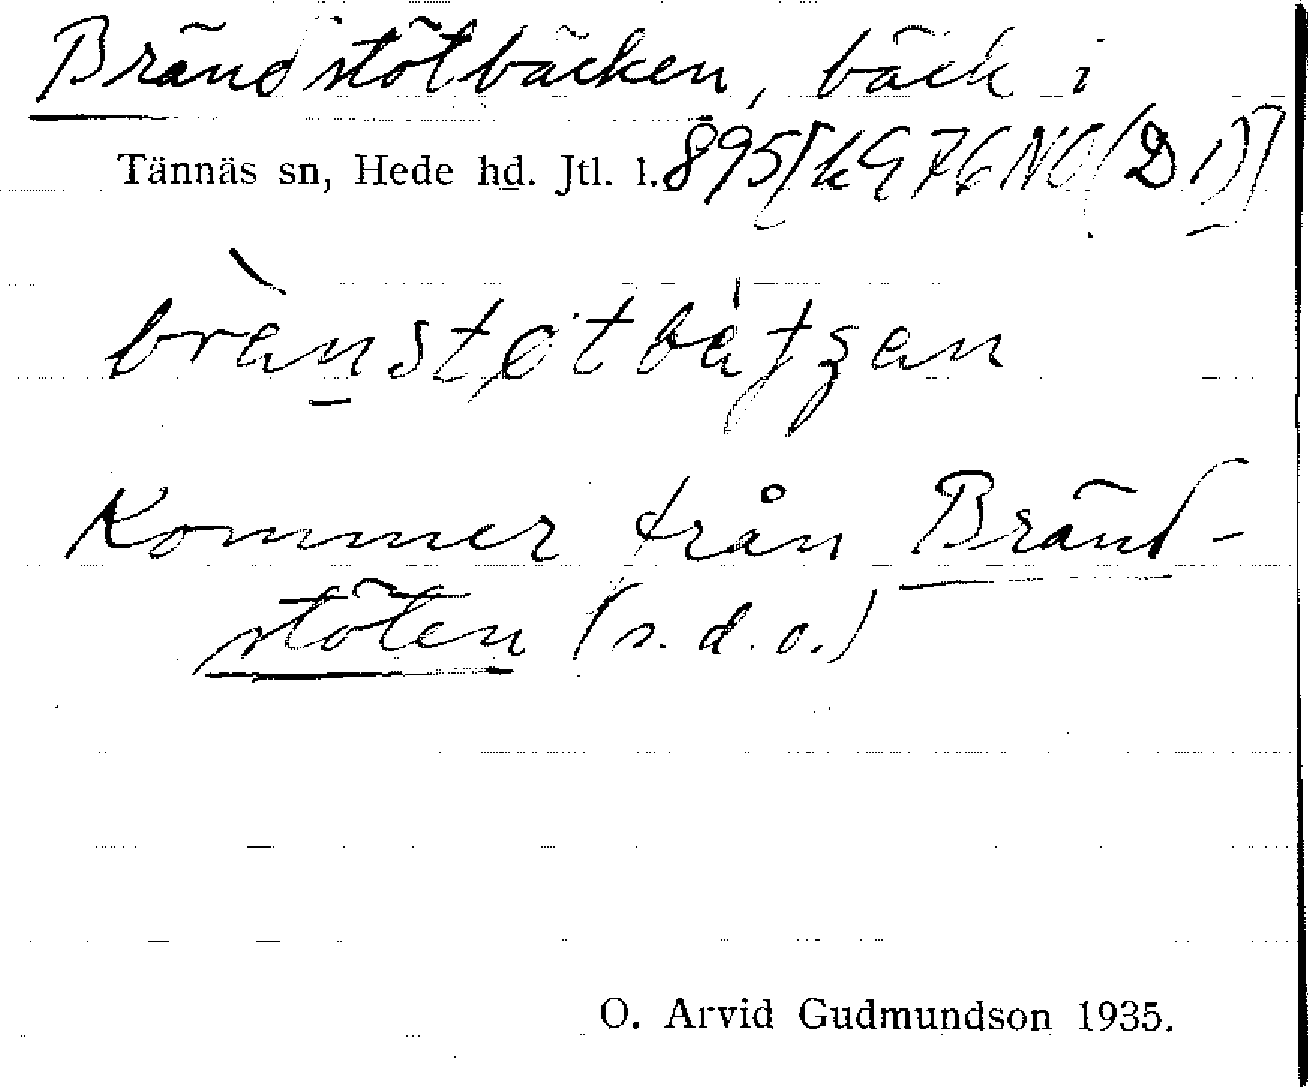 Brändstötbäcken, bäck i
Tännäs sn, Hede hd. Jtl. l. 895[kG 76 NO (D 1)]
Kommer från Bränd-
stöten (s.d.o.)
O. Arvid Gudmundson 1935.